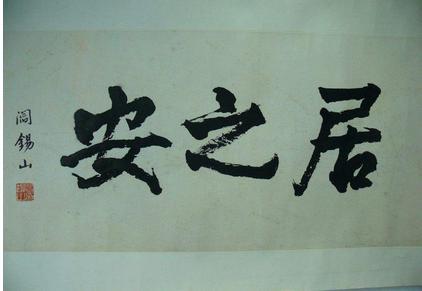 居之安
阎锡山